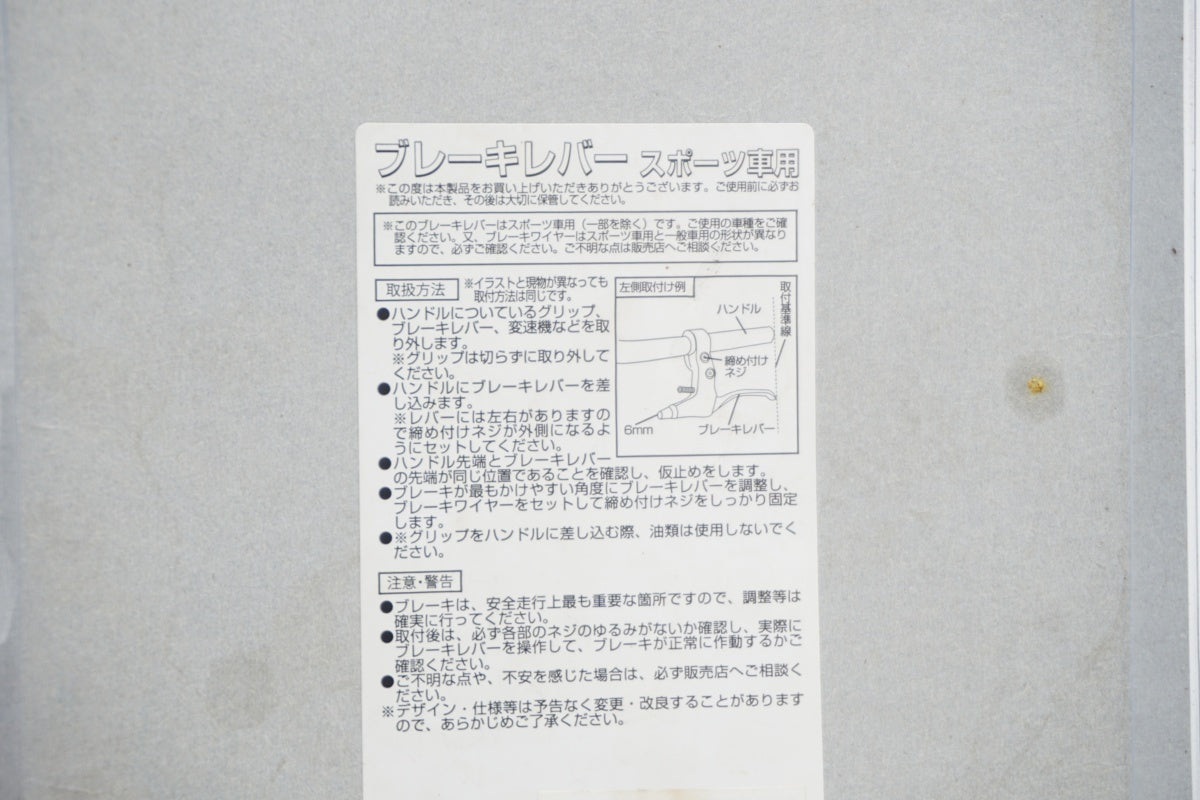 ブレーキレバー スポーツ車用
※この度は本製品をお買い上げいただきありがとうございます。ご使用前に必ずお
読みいただき、その後は大切に保管してください。
※このブレーキレバーはスポーツ車用（一部を除く）です。ご使用の車種をご確
認ください。又、ブレーキワイヤーはスポーツ車用と一般車用の形状が異なり
ますので、必ずご確認ください。ご不明な点は販売店へご相談ください。
取扱方法
※イラストと現物が異なっても
取付方法は同じです。
●ハンドルについているグリップ、
ブレーキレバー、変速機などを取
り外します。
※グリップは切らずに取り外して
ください。
●ハンドルにブレーキレバーを差
し込みます。
※レバーには左右がありますの
で締め付けネジが外側になるよ
うにセットしてください。
●ハンドル先端とブレーキレバー
の先端が同じ位置であることを確認し、仮止めをします。
●ブレーキが最もかけやすい角度にブレーキレバーを調整し、
ブレーキワイヤーをセットして締め付けネジをしっかり固定
します。
●※グリップをハンドルに差し込む際、油類は使用しないでく
ださい。
左側取付け例
ハンドル
取付基準線
締め付け
ネジ
6mm
ブレーキレバー
注意・警告
●ブレーキは、安全走行上最も重要な箇所ですので、調整等は
確実に行ってください。
●取付後は、必ず各部のネジのゆるみがないか確認し、実際に
ブレーキレバーを操作して、ブレーキが正常に作動するかご
確認ください。
●ご不明な点や、不安を感じた場合は、必ず販売店へご相談く
ださい。
※デザイン・仕様等は予告なく変更・改良することがあります
ので、あらかじめご了承ください。